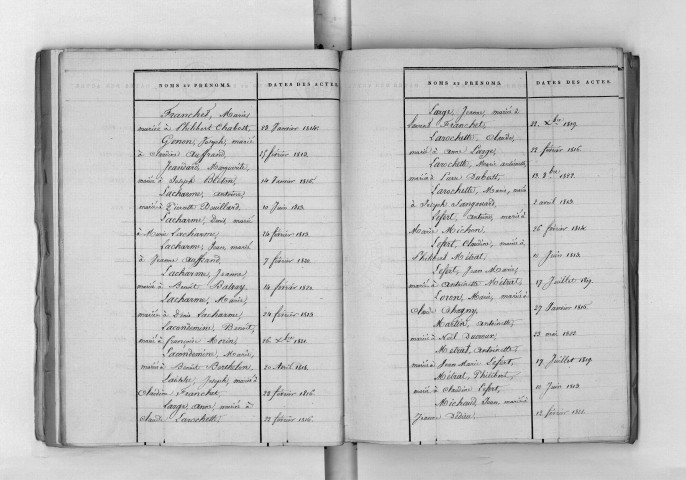 NOMS ET PRÉNOMS. DATES DES ACTES.
Franchet, Marie
mariée à Philibert Chabert 28 Janvier 1814.
Gonon, Joseph, marié
à Claudine Auffrand, 17 février 1813.
Jeandard Marguerite,
mariée à Joseph Bléton, 14 Janvier 1815.
Lacharme, Antoine,
marié à Pierrette Douillard, 10 Juin 1813.
Lacharme, Denis, marié
à Marie Lacharme, 24 février 1813.
Lacharme, Jean, marié
à Jeanne Auffrand, 7 février 1820.
Lacharme, Jeanne,
mariée à Benoît 14 février 1822.
Lacharme, Marie,
mariée à Denis Lacharme, 24 février 1813.
Lacondemine, Benoît,
marié à françoise Morin, 16 Xbre 1821.
Lacondemine, Marie,
mariée à Benoît Berthelon, 20 Avril 1818.
Joseph, marié à
Claudine Franchet, 28 février 1816.
Large Anne, mariée à
Claude Larochette, 22 février 1816.
NOMS ET PRÉNOMS. DATES DES ACTES.
Large, Jeanne, mariée à
Laurent Franchet, 22. Xbre 1819.
Larochette, Claude,
marié à Anne Large, 22 février 1816.
Larochette, Marie antoinette,
mariée à Pierre Dubost, 13. 8bre 1822.
Larochette, Marie, mariée
à Joseph 2 avril 1813.
Lefert, Antoine, marié à
Marie Michon, 26 février 1814.
Lefert, Claudine, mariée à
Philibert Métrat, 11 Juin 1813.
Lefert, Jean Marie,
marié à Antoinette Métrat, 17 Juillet 1819.
Loron, Marie, mariée à
Claude Chagny, 27 Janvier 1815.
Martin, Antoinette,
mariée à Noël Ducour, 23 mai 1822.
Métrat, Antoinette,
mariée à Jean Marie Lefert, 17 Juillet 1819.
Métrat, Philibert,
marié à Claudine Lefert, 11 Juin 1813.
Michaud, Jean marié à
Jeanne 12 février 1822.